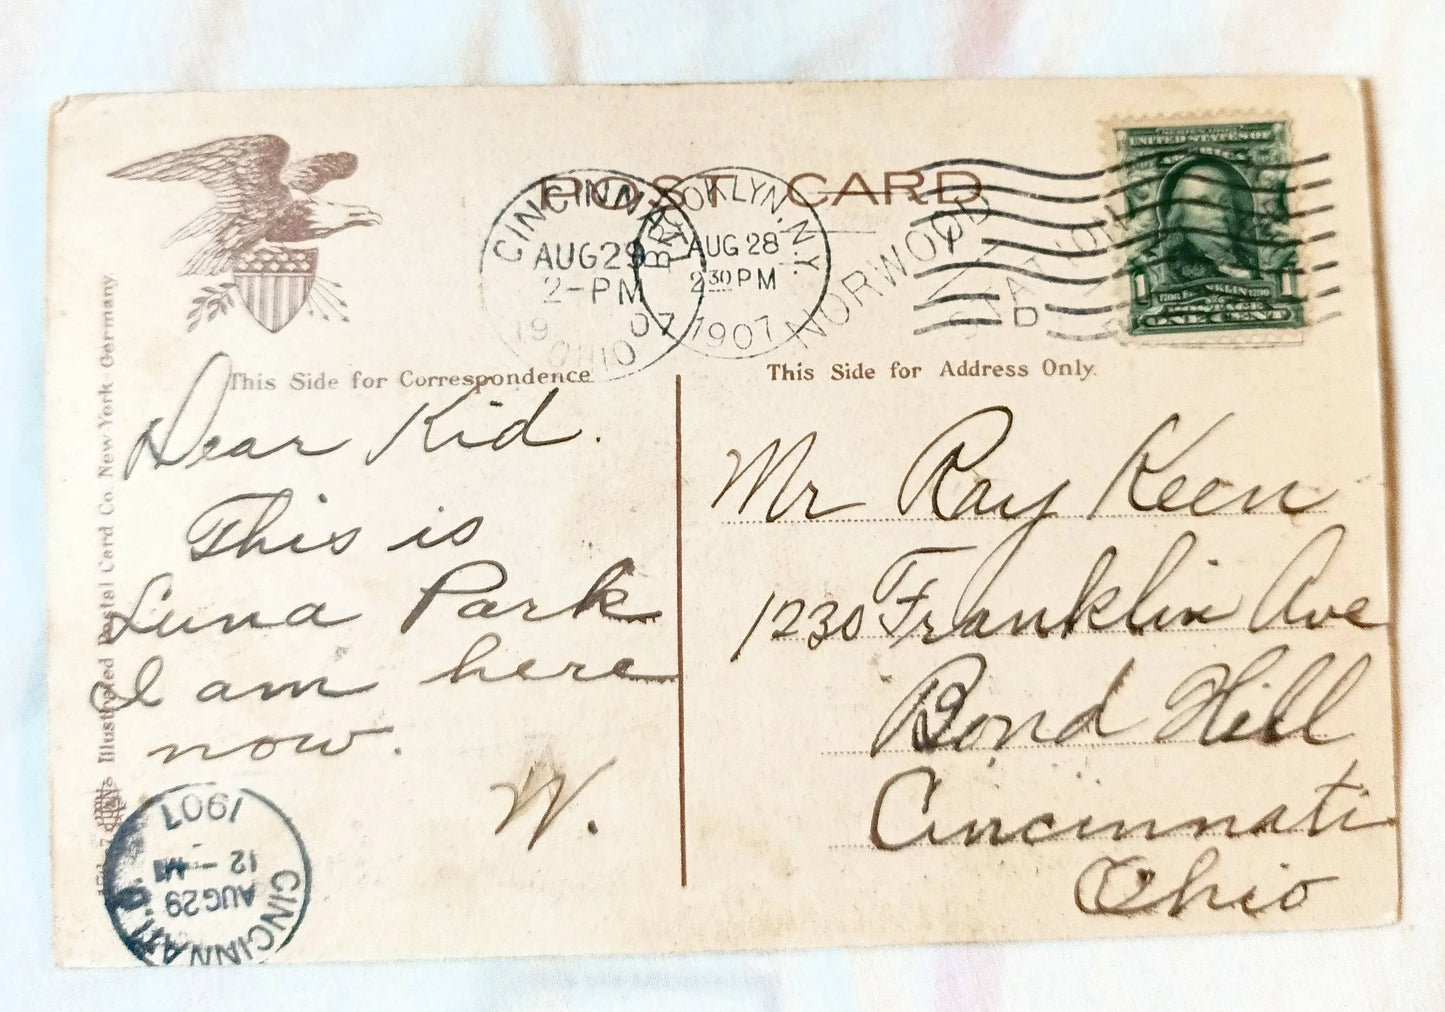 POST CARD
CINCINNATI
AUG 29
2-PM
19 07
OHIO
BROOKLYN, N.Y.
AUG 28
2 30 PM
1907
NORWOOD
STATION
D
UNITED STATES OF
AMERICA
1 FRANKLIN 1
POSTAGE
ONE CENT
This Side for Correspondence
This Side for Address Only.
Dear Kid.
This is
Luna Park
I am here
now.
W.
Mr Ray Keen
1230 Franklin Ave
Bond Hill
Cincinnati
Ohio
Illustrated Postal Card Co. New York Germany
CINCINNATI, O.
AUG 29
12 - M
1907